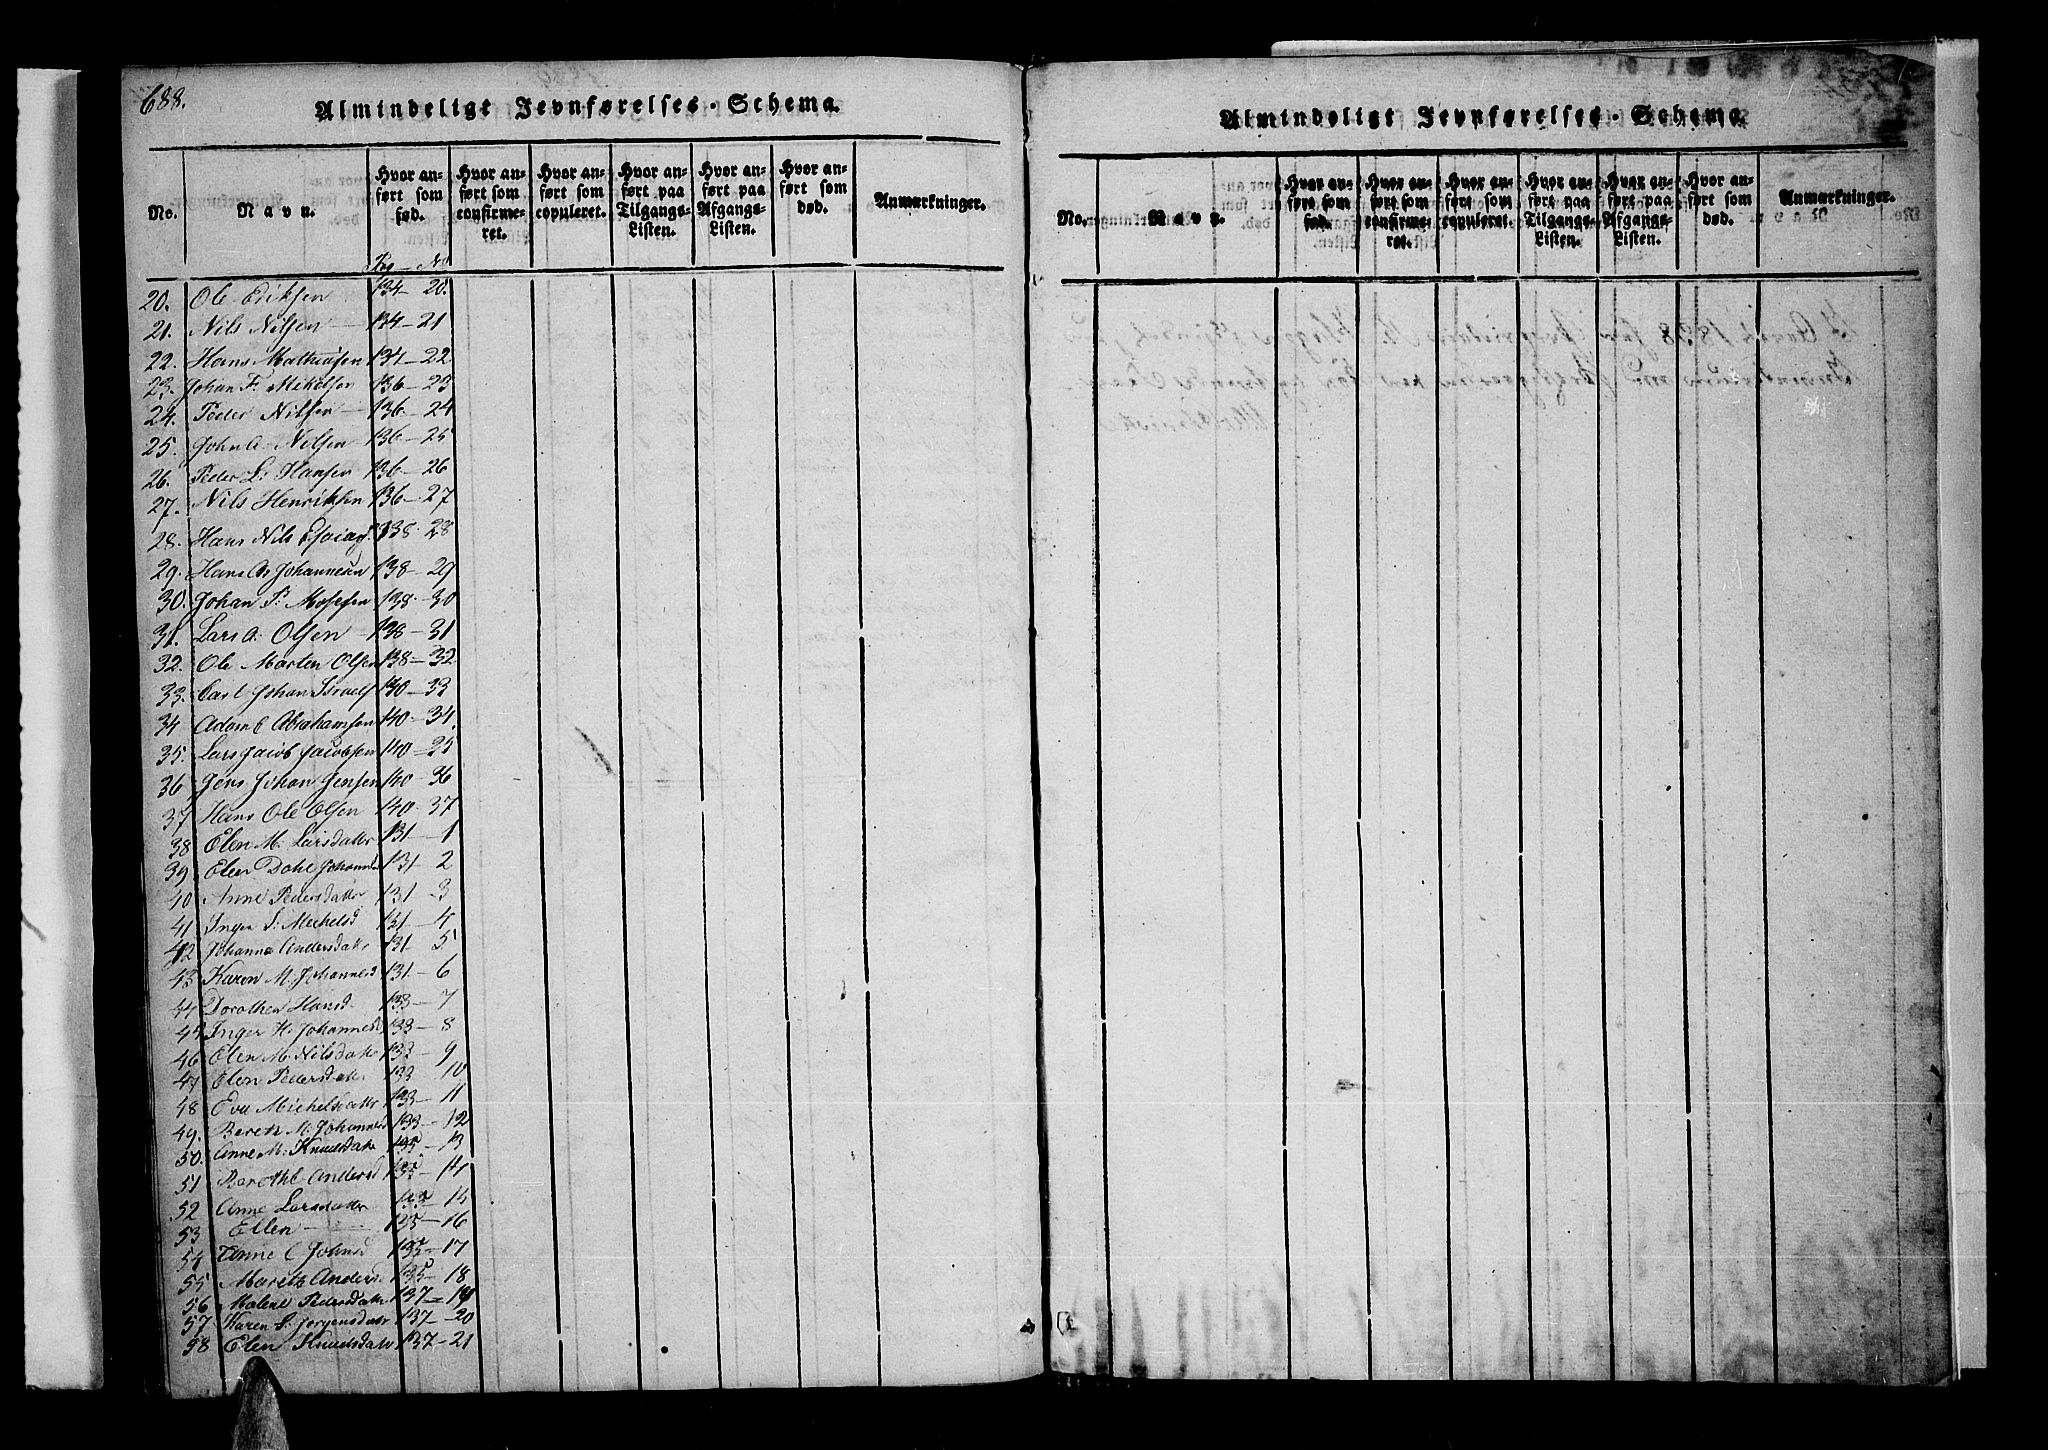 688.
Almindeligt Jevnførelses-Schema.
No. Navn. Hvor anført som fød. Hvor anført som confirmeret. Hvor anført som copuleret. Hvor anført paa Tilgangs-Listen. Hvor anført paa Afgangs-Listen. Hvor anført som død. Anmærkninger.
Pag – No
20. Ole Eriksen 134 – 20.
21. Nils Nilsen 134 – 21
22. Hans Mathisen 134 – 22.
23. Johan F. Mikelsen 136 – 23
24. Peder Nilsen 136 – 24
25. John A. Nilsen 136 – 25
26. Peder L. Hansen 136 – 26
27. Nils Henriksen 136 – 27
28. Hans Nils 138 – 28
29. Hans As Johannesen 138 – 29
30. Johan P. Mosesen 138 – 30
31. Lars A. Olsen 138 – 31
32. Ole Morten Olsen 138 – 32
33. Carl Johan Israels 33
34 Adam C Abrahamsen 140 – 34.
35. Lars Jacob Jacobsen 140 – 35
36 Jens Johan Jensen 140 – 36
37 Hans Ole Olsen 140 – 37
38 Elen M. Larsdatter 131 – 1
39 Elen Johannesd 131 – 2
40 Anne Pedersdatter 131 – 3
41 Inger S. Michelsd 131 – 4
42 Johanna Andersdatter 131 – 5
43 Karen M. Johannesd 131 – 6
44 Dorothea Hansd. 133 – 7
45 Inger H. Johannesd 133 – 8
46 Elen M. Nilsdatter 133 – 9
47 Elen Pedersdatter 133 10
48 Eva Michelsdatter 133 – 11
49. Bereth M. Johannesd 133 – 12
50. Anne M. Knudsdatter 135 – 13
51 Andersd 135 – 14
52 Anne Larsdatter 135 – 15
53 Ellen 135 – 16
54 Anne C Johnsd 135 – 17
55 Mareth Anders 135 – 18
56 Malene Pedersdatter 137 – 19
57 Karen S. Jørgensdatter 137 – 20
58 Elen Knudsdatter 137 – 21
Almindeligt Jevnførelses-Schema.
No. Navn. Hvor anført som fød. Hvor anført som confirmeret. Hvor anført som copuleret. Hvor anført paa Tilgangs-Listen. Hvor anført paa Afgangs-Listen. Hvor anført som død. Anmærkninger.